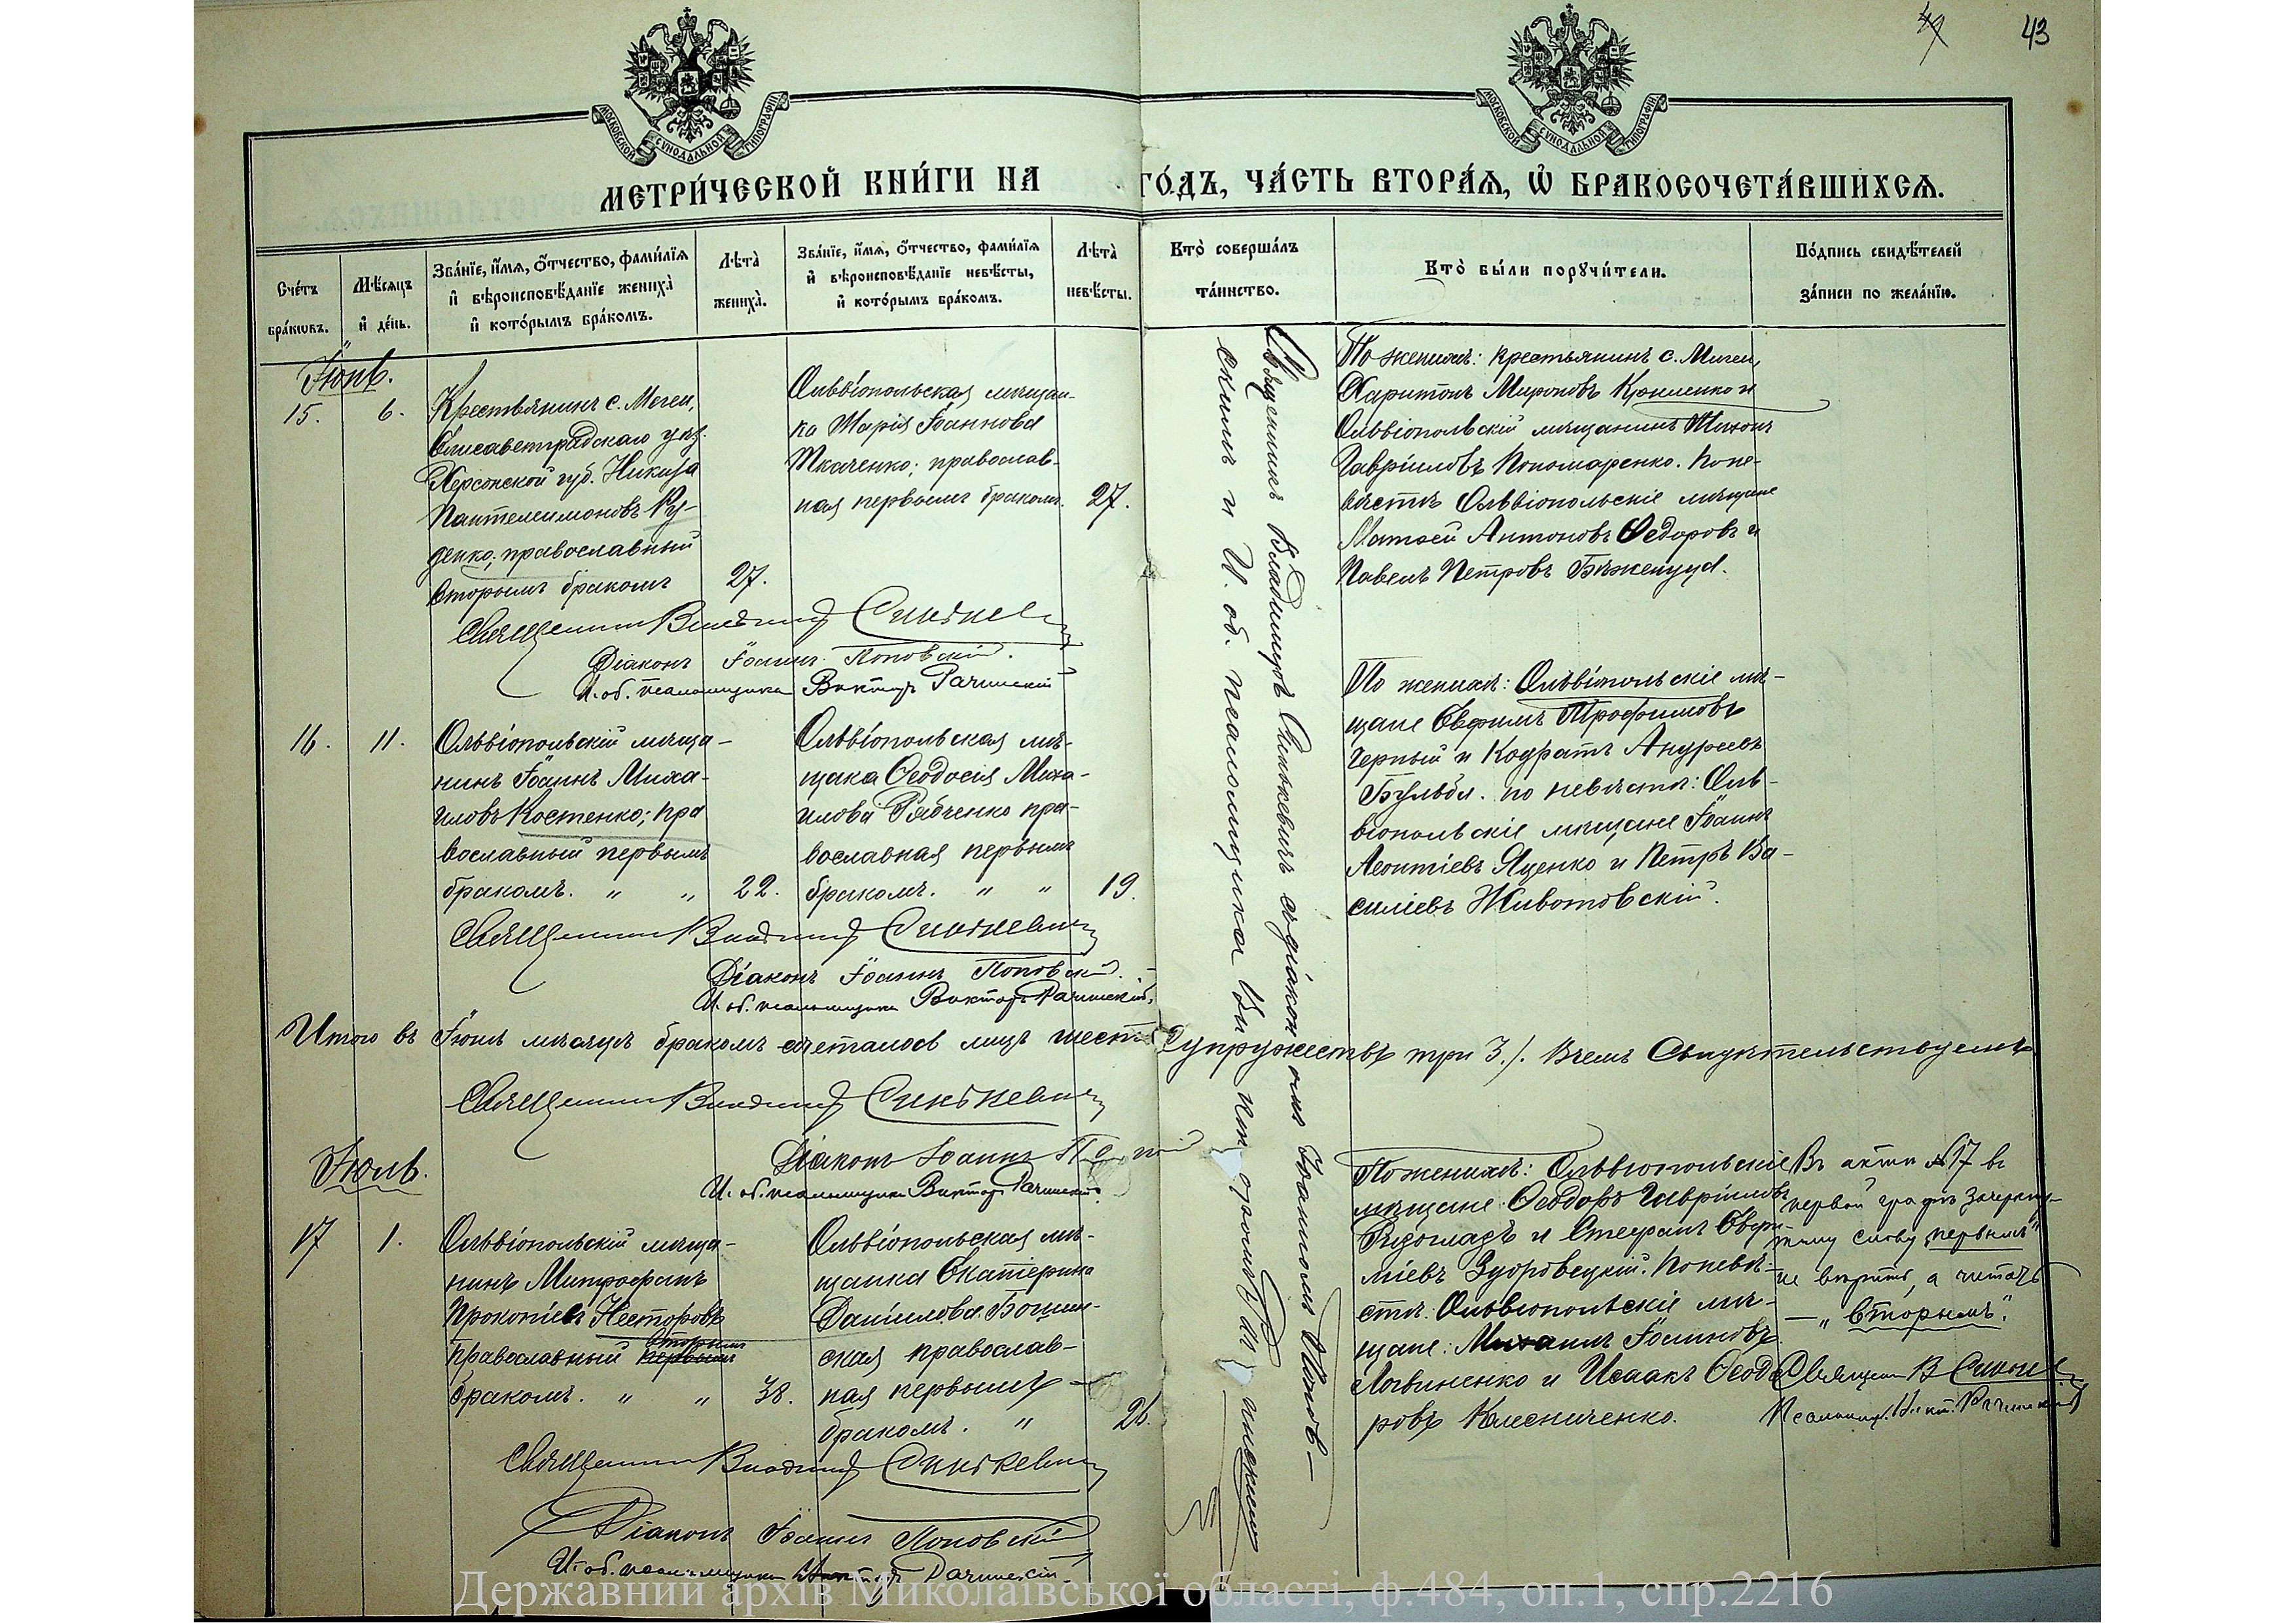 43
МОСКОВСКОЙ СУНОДАЛЬНОЙ ТИПОГРАФІИ
МОСКОВСКОЙ СУНОДАЛЬНОЙ ТИПОГРАФІИ
МЕТРИ́ЧЕСКОЙ КНИ́ГИ НА ГО́ДЪ, ЧА́СТЬ ВТОРА́Я, Ѡ БРАКОСОЧЕТА́ВШИХСЯ.
Сче́тъ бра́кѡвъ.
Мѣ́сяцъ и҆ де́нь.
Зва́нїе, и҆́мя, о҆́тчество, фами́лїя и҆ вѣроисповѣ́данїе жениха̀ и҆ кото́рымъ бра́комъ.
Лѣта̀ жениха̀.
Зва́нїе, и҆́мя, о҆́тчество, фами́лїя и҆ вѣроисповѣ́данїе невѣ́сты, и҆ кото́рымъ бра́комъ.
Лѣта̀ невѣ́сты.
Кто̀ соверша́лъ та́инство.
Кто̀ бы́ли порꙋчи́тели.
По́дпись свидѣ́телей за́писи по жела́нїю.
Іюнь.
15.
6.
Крестьянинъ с. Мигеи,
Елисаветградскаго уѣз.
Херсонской губ. Никита
Пантелеимоновъ Ру-
денко; православный
вторымъ бракомъ
27.
Ольвіопольская мѣщан-
ка Марія Іоаннова
Ткаченко; православ-
ная первымъ бракомъ.
27.
Священникъ Владимиръ Синькевичъ съ діакономъ Іоанномъ Попов-
скимъ и И. об. псаломщика
По женихѣ: крестьянинъ с. Мигеи,
Харитонъ Мироновъ и
Ольвіопольскій мѣщанинъ Тихонъ
Гавріиловъ Пономаренко. По не-
вѣстѣ Ольвіопольскіе мѣщане
Матѳей Антоновъ Ѳедоровъ и
Павелъ Петровъ
Священникъ Владимиръ Синькевичъ
Діаконъ Іоаннъ Поповскій.
И. об. псаломщика Викторъ Рачинскій
16.
11.
Ольвіопольскій мѣща-
нинъ Іоаннъ Миха-
иловъ Костенко; пра
вославный первымъ
бракомъ. " "
22.
Ольвіопольская мѣ-
щака Ѳеодосія Миха-
илова Рябченко пра-
вославная первымъ
бракомъ. " "
19.
По женихѣ: Ольвіопольскіе мѣ-
щане Евфимъ Трофимовъ
Черный и Кодратъ Андреевъ
Бульба. по невѣстѣ: Оль-
віопольскіе мѣщане Іоаннъ
Леонтіевъ Яценко и Петръ Ва-
силіевъ Животовскій.
Священникъ Владимиръ Синькевичъ
Діаконъ Іоаннъ Поповскій.
И. об. псаломщика Викторъ Рачинскій.
Итого въ Іюнѣ мѣсяцѣ бракомъ сочеталось лицъ шесть супружествъ три 3./. Въ чемъ Свидѣтельствуемъ
Священникъ Владимиръ Синькевичъ
Діаконъ Іоаннъ
И. об. псаломщика Викторъ Рачинскій.
Іюль.
17
1.
Ольвіопольскій мѣща-
нинъ Митрофанъ
Прокопіевъ Несторовъ
вторымъ
православный первымъ
бракомъ. " "
38.
Ольвіопольская мѣ-
щанка Екатерина
Даніилова
ская православ-
ная первымъ
бракомъ. "
26.
По женихѣ: Ольвіопольскіе
мѣщане Ѳеодоръ Гавріиловъ
и Стефанъ Евфи-
міевъ Здоровецкій. По невѣ-
стѣ: Ольвіопольскіе мѣ-
щане: Михаилъ Іоанновъ
Логвиненко и Исаакъ Ѳеодо
ровъ Колесниченко.
Въ актѣ №17 въ
первой графѣ зачеркну-
тому слову "первымъ"
не вѣрить, а читать
— "вторымъ".
Священ. В Синьк
Псаломщ. Викт. Рачинскій
Священникъ Владимиръ Синькевичъ
Діаконъ Іоаннъ Поповскій
И. об. псаломщика Викторъ Рачинскій.
Державний архів Миколаївської області, ф.484, оп.1, спр.2216